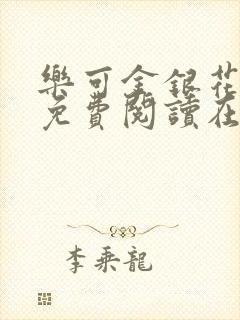 樂可金銀花
免費閱讀在
李乘龍